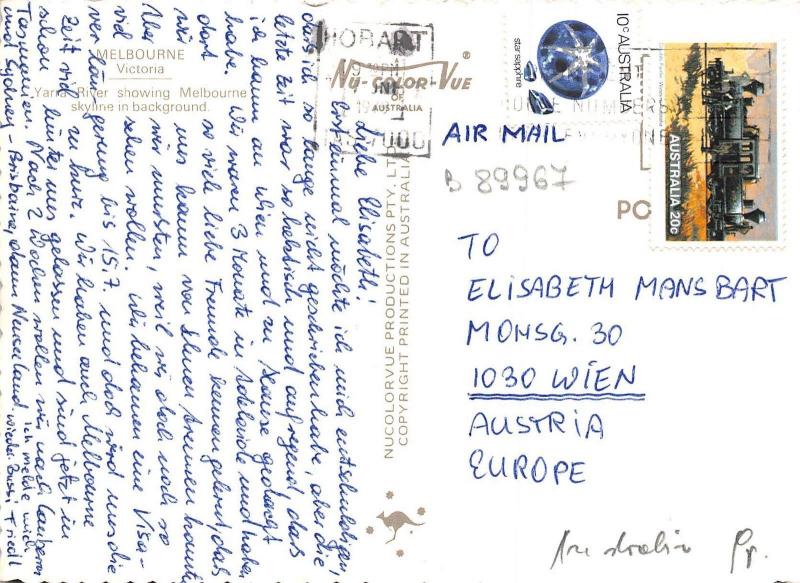 MELBOURNE
Victoria
Yarra River showing Melbourne
skyline in background.
Liebe Elisabeth!
Erst einmal möchte ich mich entschuldigen,
dass ich so lange nicht geschrieben habe, aber die
letzte Zeit war so hektisch und aufregend dass
ich kaum an Wien und zu Hause gedacht
habe. Wir waren 3 Monate in Adelaide und haben
dort so viel liebe Freunde kennengelernt, dass
wir uns kaum von ihnen trennen konnten.
Aber wir mussten, weil wir doch noch so
viel sehen wollen. Wir bekamen eine Visa-
verlängerung bis 15.7. und doch wird uns die
Zeit viel zu kurz. Wir haben auch Melbourne
schon hinter uns gelassen und sind jetzt in
Tasmanien. Nach 2 Wochen wollen wir nach Canberra
und Sydney - Brisbaine, dann Neuseeland. Ich melde mich
wieder Bussi Friedl
NUCOLORVUE PRODUCTIONS PTY. LTD.
COPYRIGHT PRINTED IN AUSTRALIA
NU-COLOR-VUE ®
OF
AUSTRALIA
HOBART
TAS 7000
10c AUSTRALIA
star sapphire
AUSTRALIA 20c
AIR MAIL
B 89967
PO
TO
ELISABETH MANSBART
MOHSG. 30
1030 WIEN
AUSTRIA
EUROPE
Australia Gr.